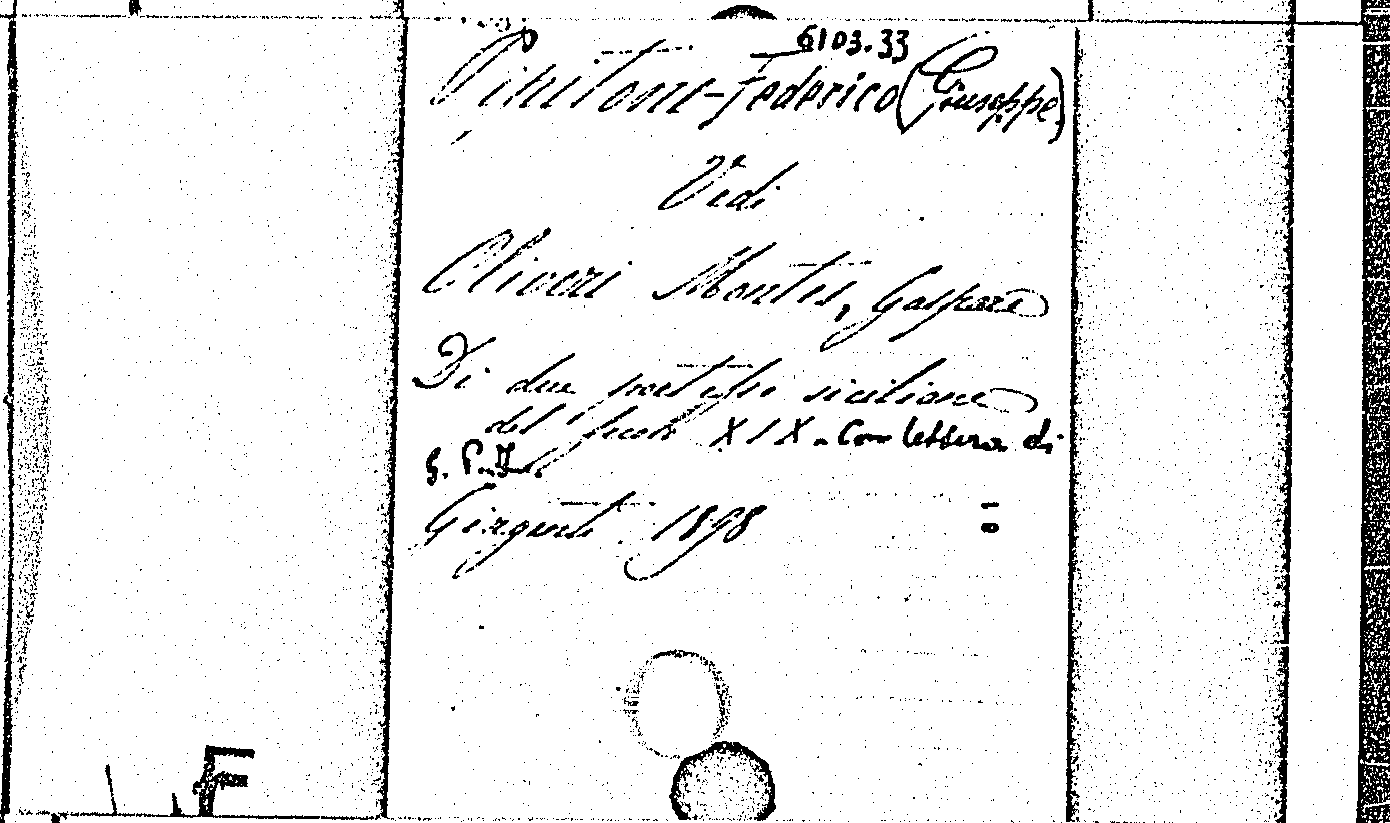 6103.33
Pipitone-Federico (Giuseppe)
Vedi
Oliveri Montes, Gaspare
Di due poetesse siciliane
del secolo XIX. Con lettera di
G. P. F.
Girgenti 1898
F